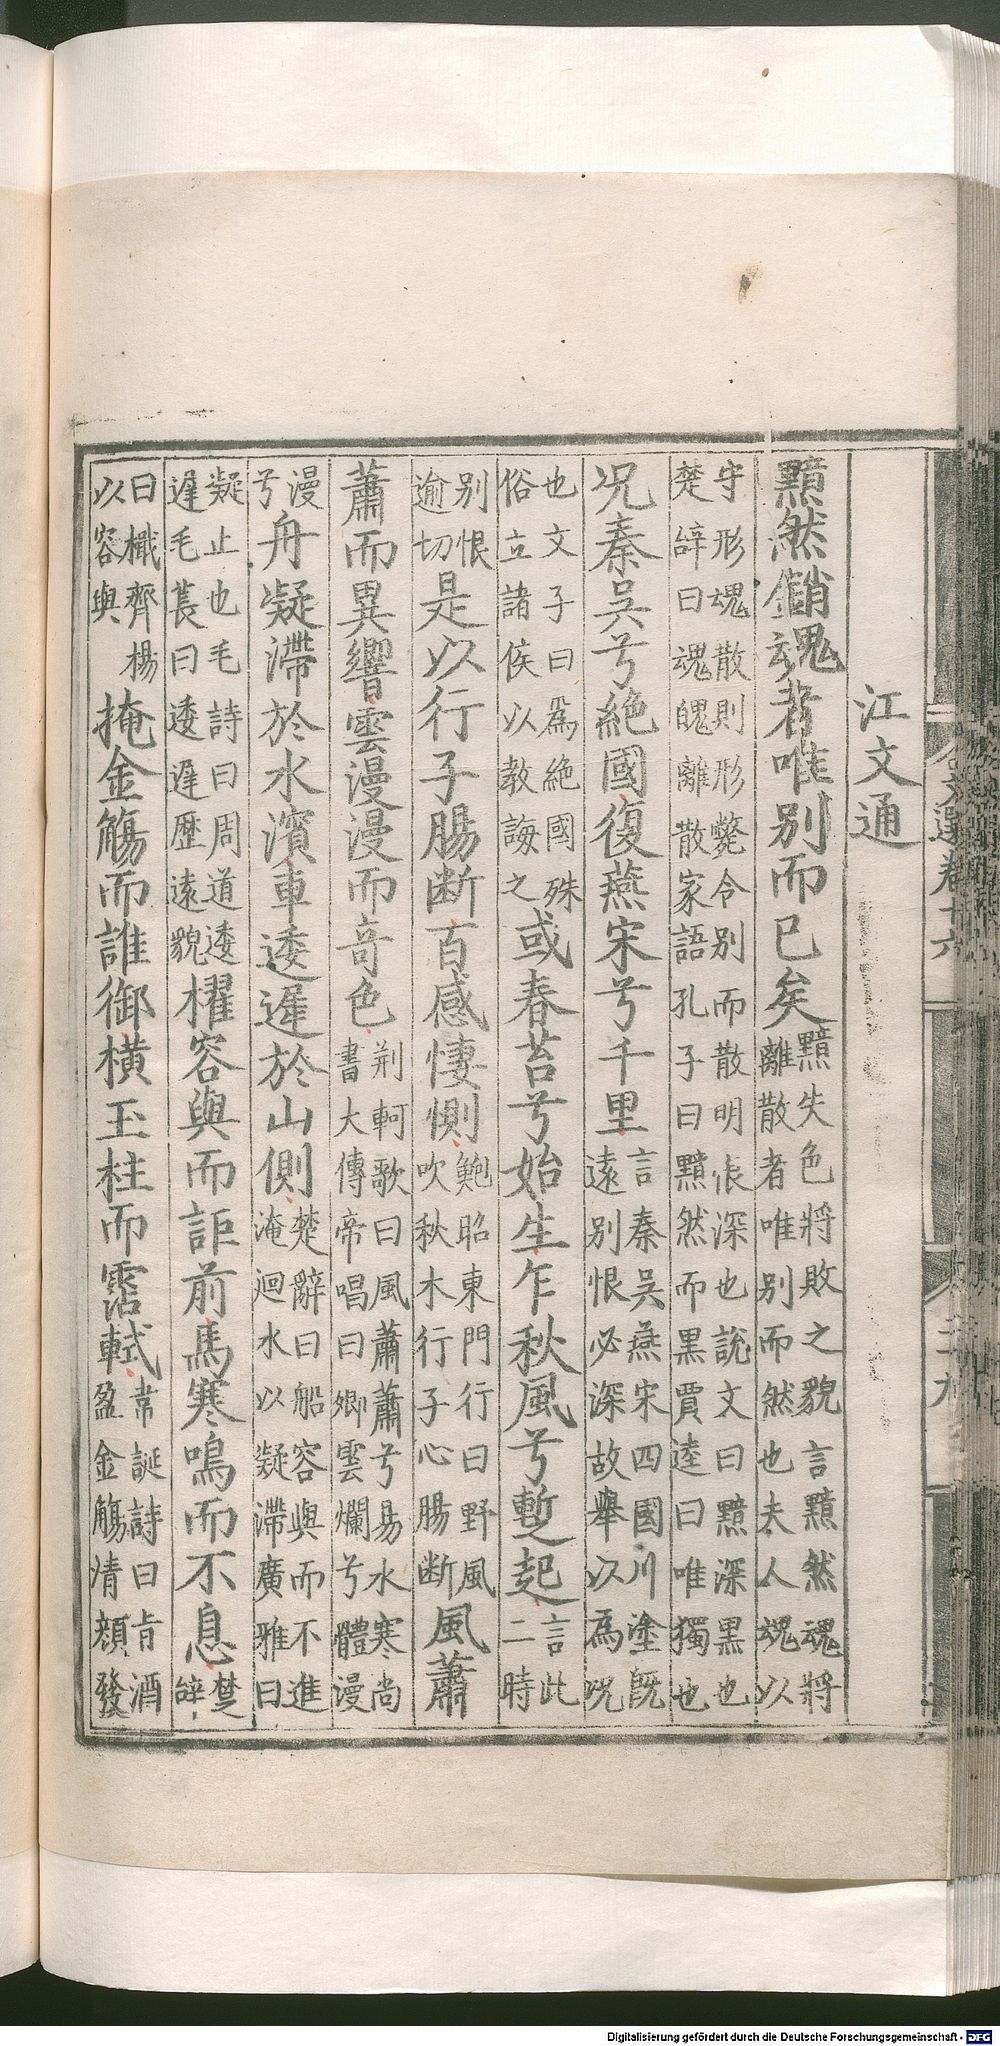 文選卷十六
江文通
黯然銷魂者唯别而已矣黯失色將敗之貌言黯然魂將離散者唯别而然也夫人魂以
守形魂散則形斃令别而散明恨深也說文曰黯深黒也楚辞曰魂魄離散家語孔子曰黯然而黒賈逵曰唯獨也
况秦吳兮絶國復燕宋兮千里言秦吳燕宋四國川塗旣遠别恨必深故舉以為况
也文子曰爲絶國殊俗立諸侯以教誨之或春苔兮始生乍秋風兮蹔起言此二時
别恨逾切是以行子腸断百感悽惻鮑昭東門行曰野風吹秋木行子心腸断風蕭
蕭而異響雲漫漫而竒色荆軻歌曰風蕭蕭兮易水寒尚書大傳帝唱曰卿雲爛兮體漫
漫兮舟凝滯於水濱車逶遲於山側楚辭曰船容與而不進淹迴水以凝滯廣雅曰
凝止也毛詩曰周道逶遲毛萇曰逶遲歴遠貌櫂容與而詎前馬寒鳴而不息楚辞
曰檝齊楊以容與掩金觴而誰御横玉柱而霑軾韋誕詩曰旨酒盈金觴清顔發
Digitalisierung gefördert durch die Deutsche Forschungsgemeinschaft - DFG